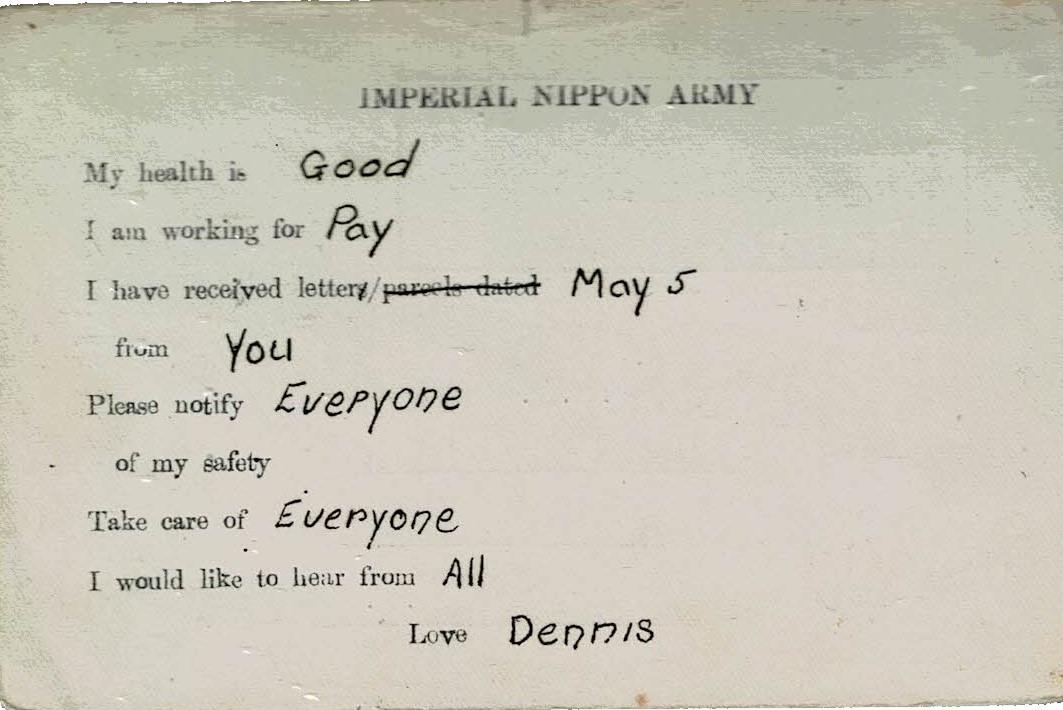 IMPERIAL NIPPON ARMY
My health is Good
I am working for Pay
I have received letters/parcels dated May 5
from You
Please notify Everyone
of my safety
Take care of Everyone
I would like to hear from All
Love Dennis